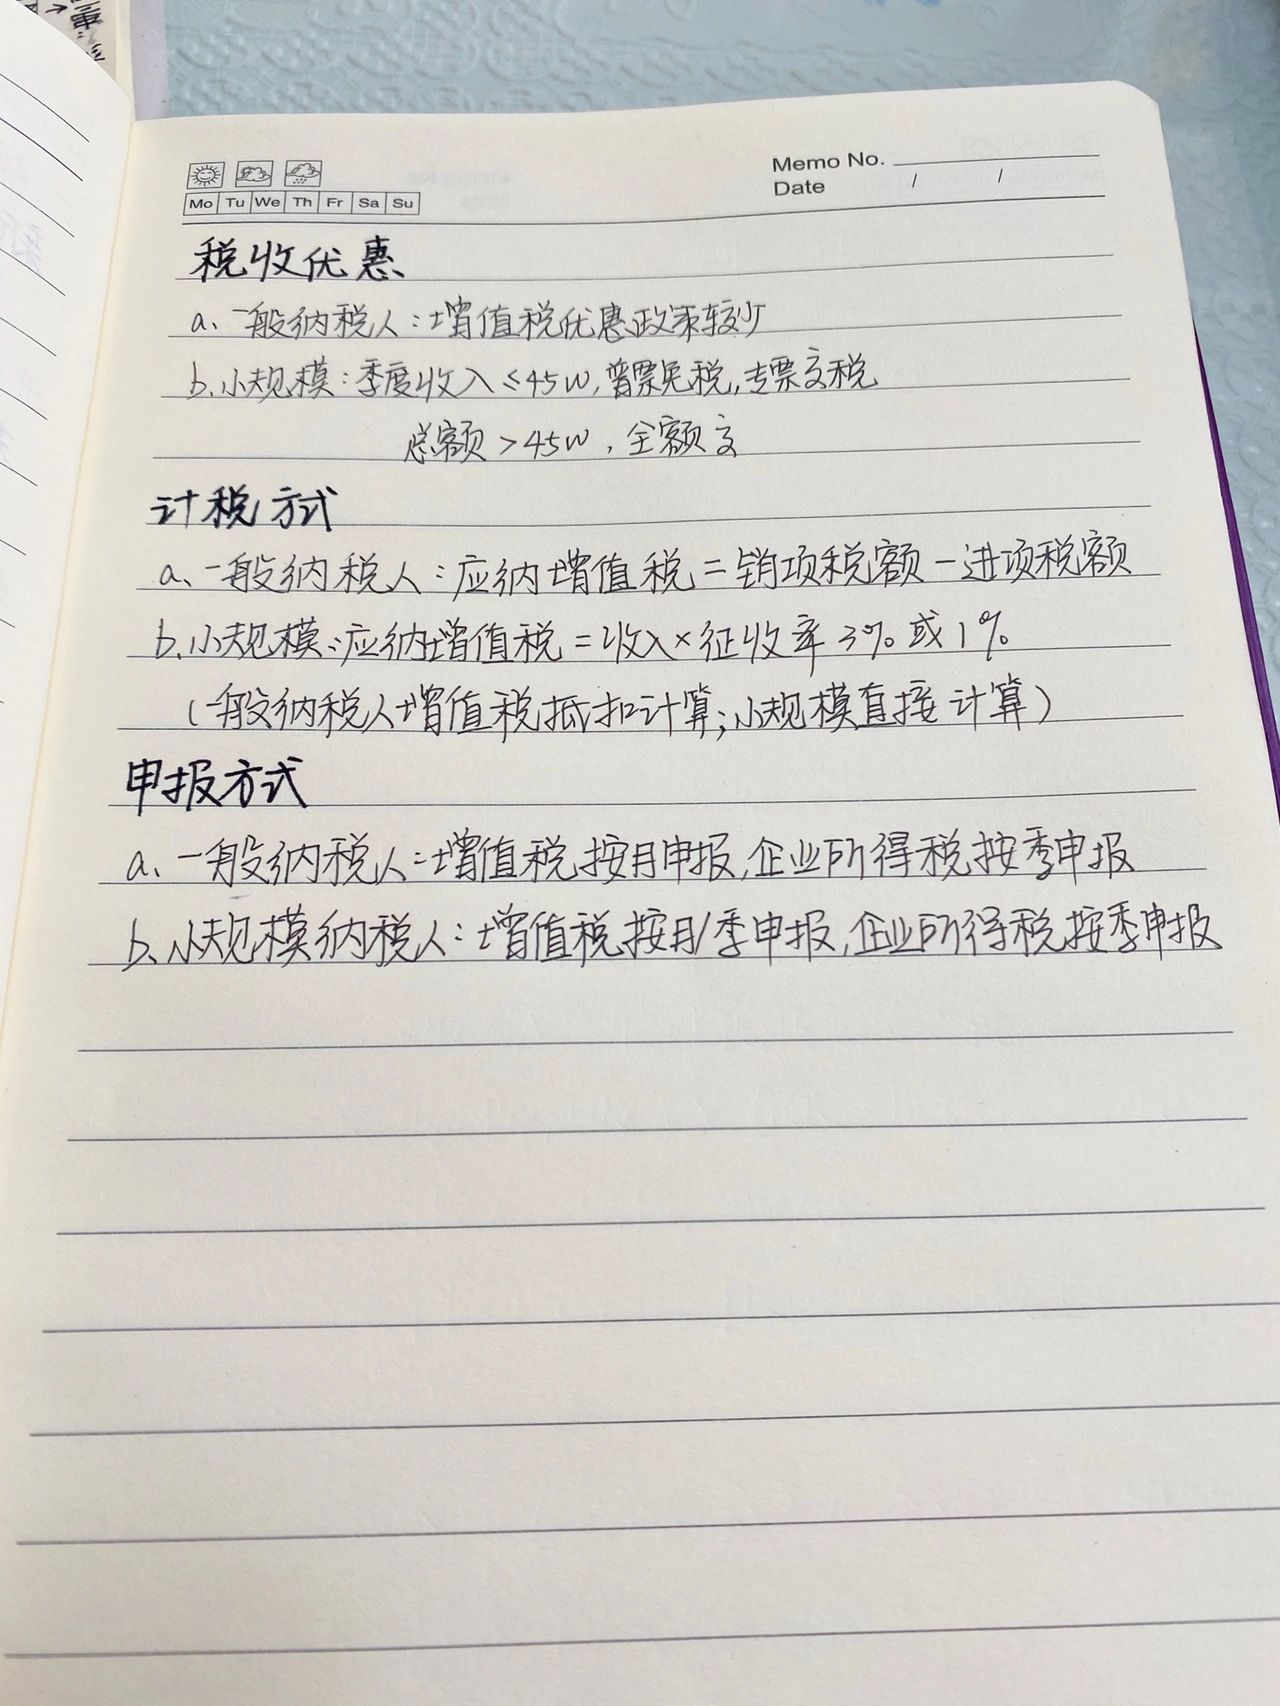 Memo No.
Date / /
Mo Tu We Th Fr Sa Su
税收优惠
a、一般纳税人：增值税优惠政策较少
b.小规模：季度收入≤45W,普票免税,专票交税
总额>45W，全额交
计税方式
a、一般纳税人：应纳增值税=销项税额-进项税额
b.小规模：应纳增值税=收入×征收率3%或1%
(一般纳税人增值税抵扣计算;小规模直接计算)
申报方式
a、一般纳税人：增值税按月申报,企业所得税按季申报
b、小规模纳税人：增值税按月/季申报,企业所得税按季申报